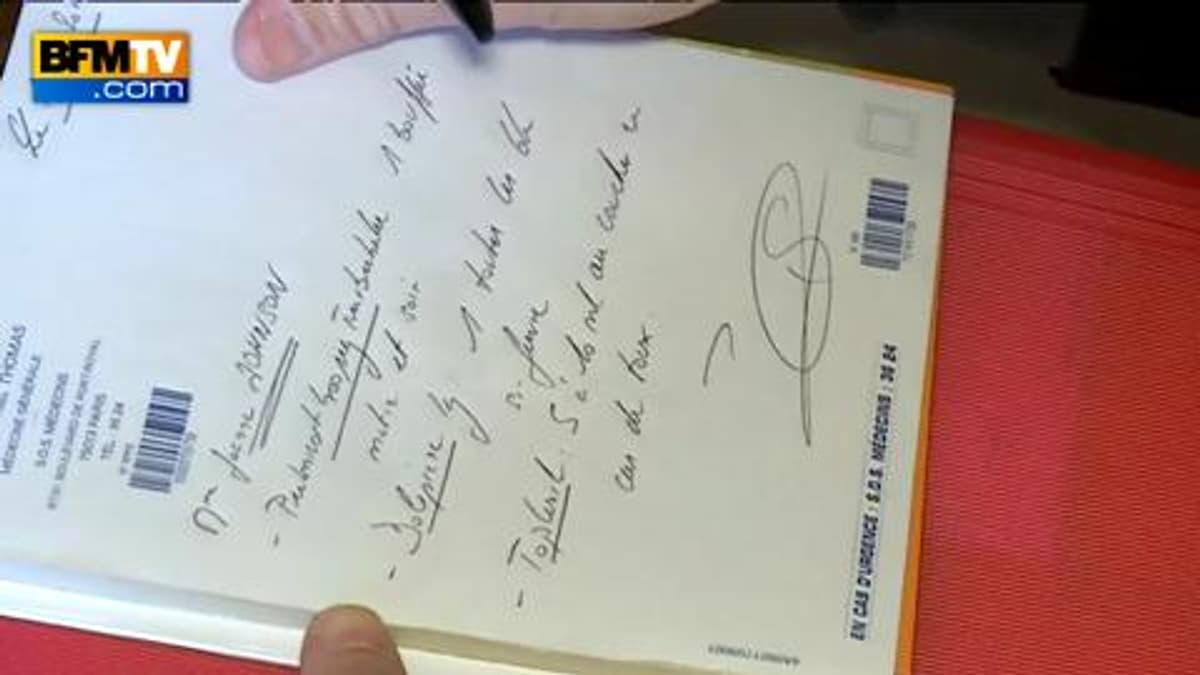 BFMTV
.com
THOMAS
MÉDECINE GÉNÉRALE
S.O.S. MÉDECINS
BOULEVARD DE PORT-ROYAL
75013 PARIS
TEL : 36 24
Le
Mme JOHNSON
- Turbuhaler 1 bouffée
matin et soir
- Doliprane 1g 1 toutes les 6h
si fièvre
- Toplexil : 5 à 10 ml au coucher en
cas de toux.
EN CAS D'URGENCE : S.O.S. MÉDECINS : 36 24